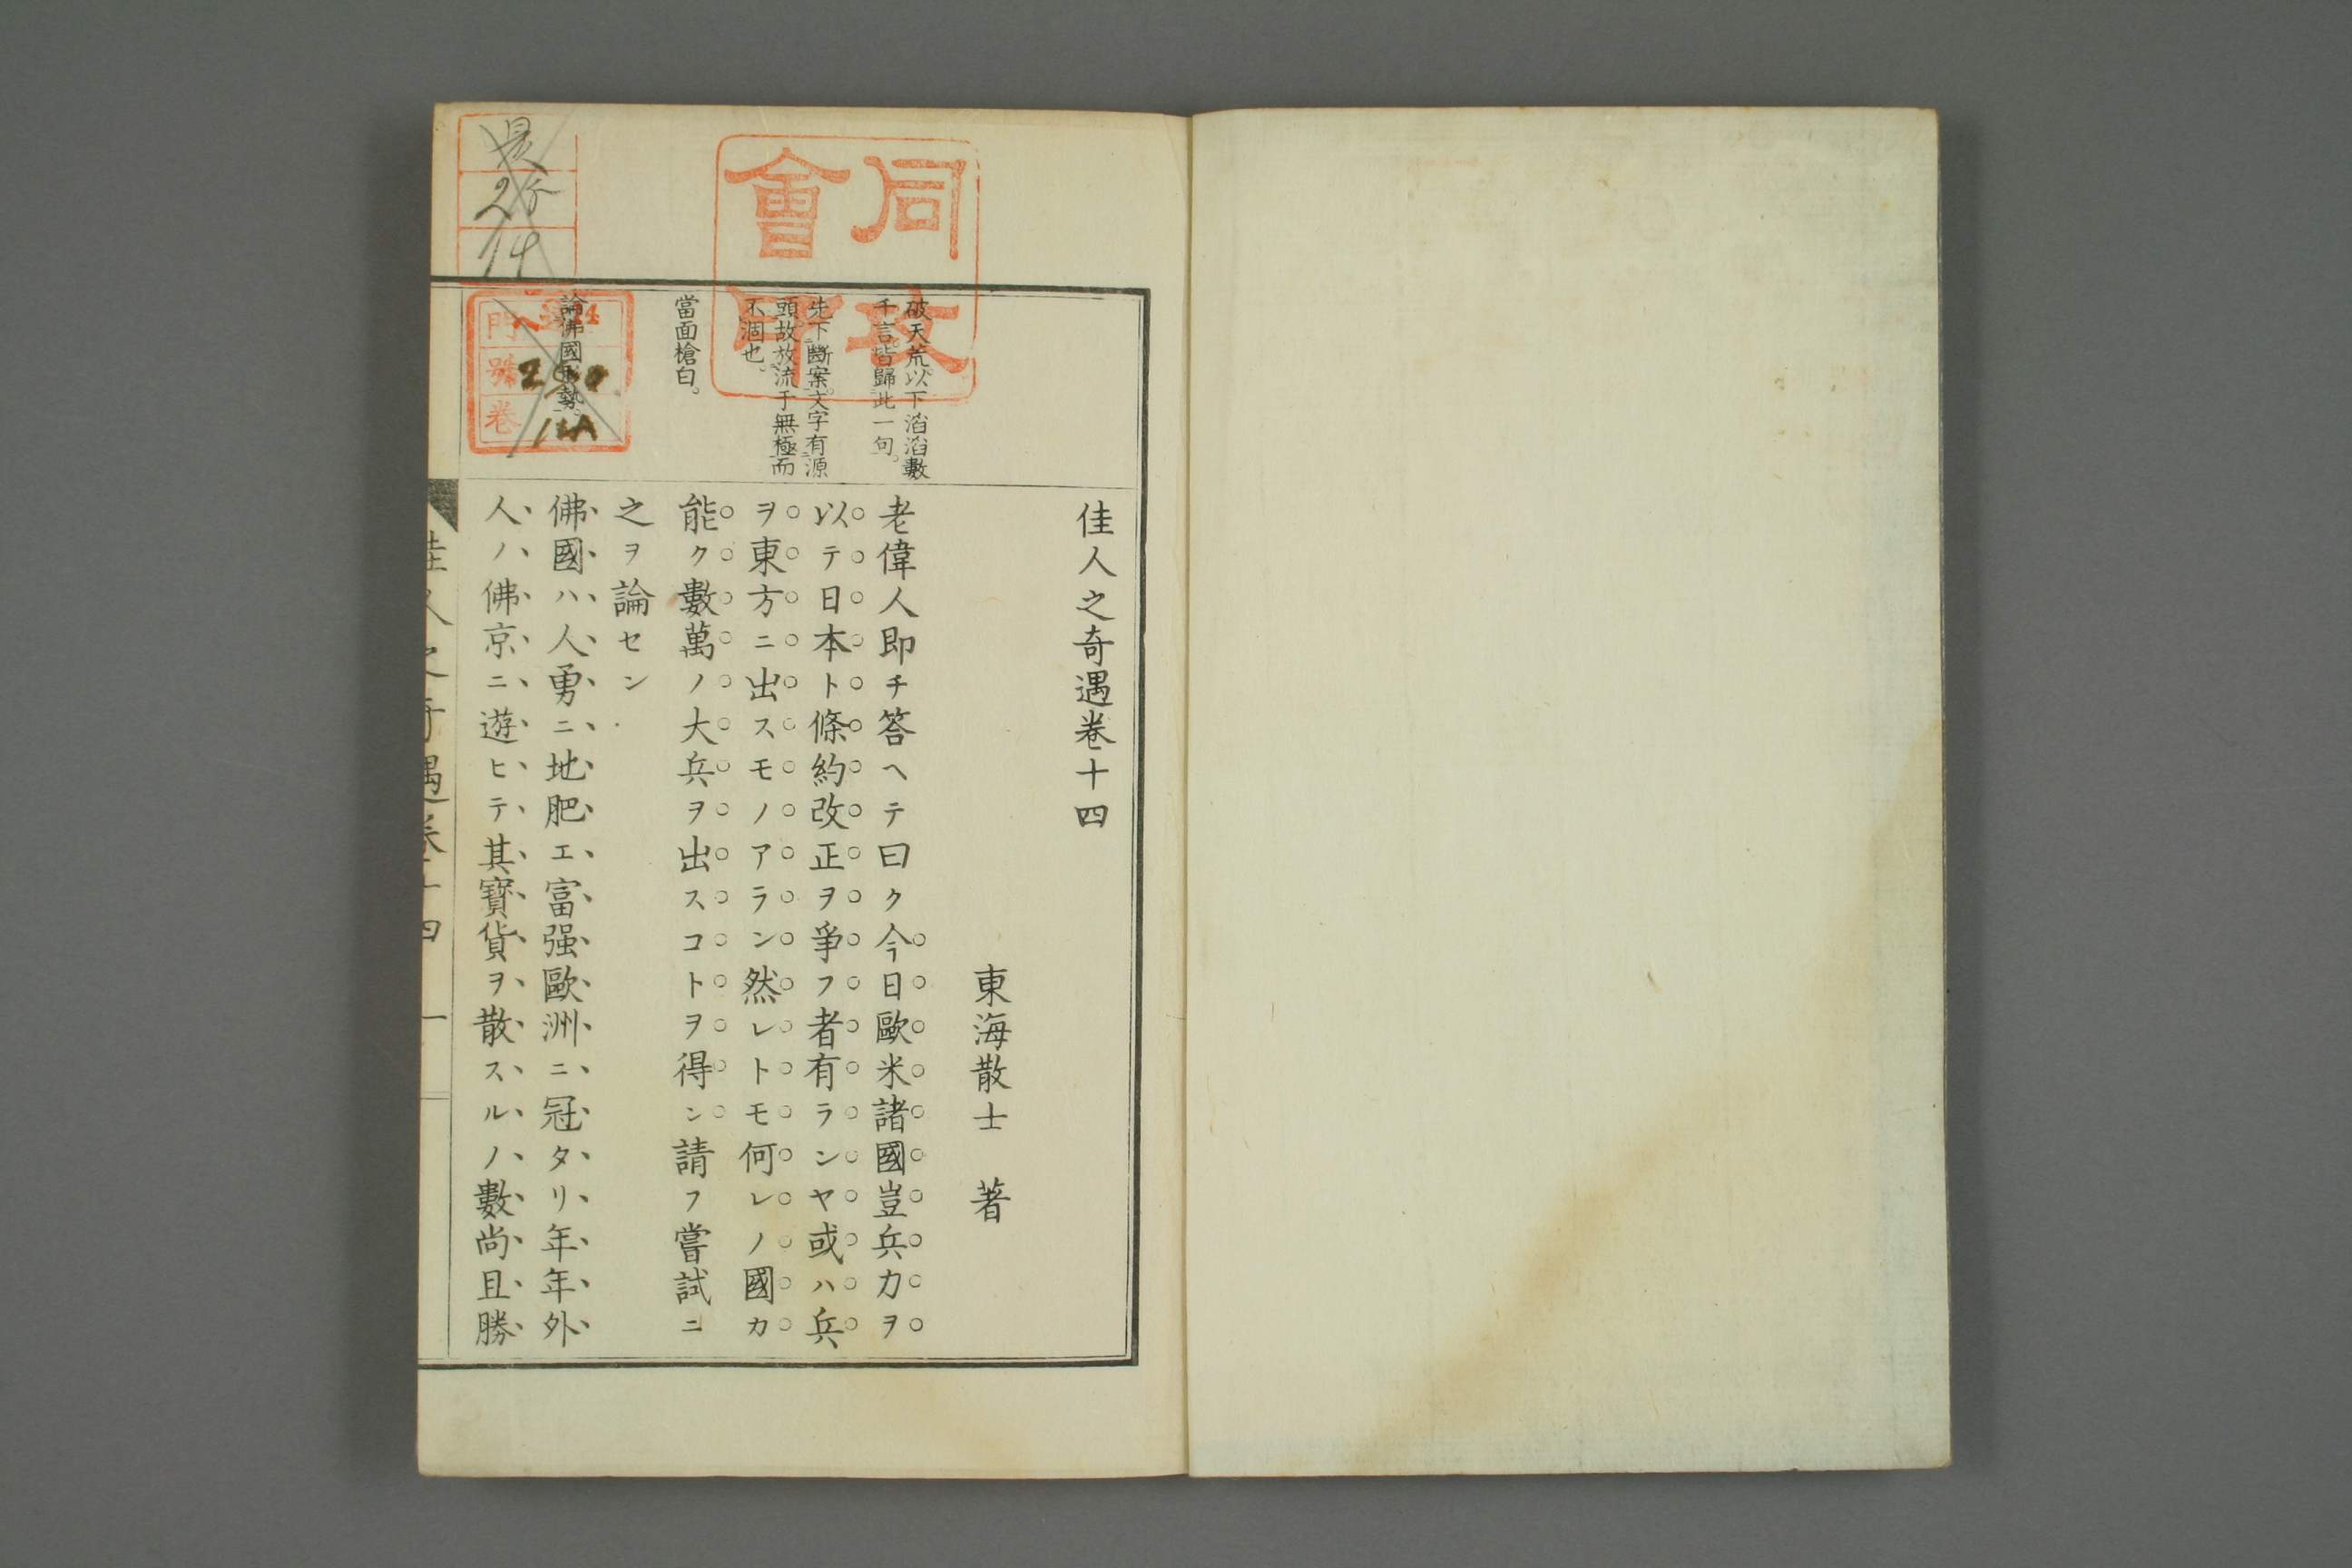 佳人之奇遇卷十四
東海散士　著
老偉人即チ答ヘテ曰ク今日歐米諸國豈兵力ヲ
以テ日本ト條約改正ヲ爭フ者有ランヤ或ハ兵
ヲ東方ニ出スモノアラン然レトモ何レノ國カ
能ク數萬ノ大兵ヲ出スコトヲ得ン請フ嘗試ニ
之ヲ論セン
佛國ハ人勇ニ地肥エ富强歐洲ニ冠タリ年年外
人ノ佛京ニ遊ヒテ其寳貨ヲ散スルノ數尚且勝
破天荒以下滔滔數
千言皆歸此一句。
先下斷案文字有源
頭故放流于無極而
不涸也。
當面槍白。
論佛國勢
佳人之奇遇卷十四
一
同攻會印
門
號
卷
25
14